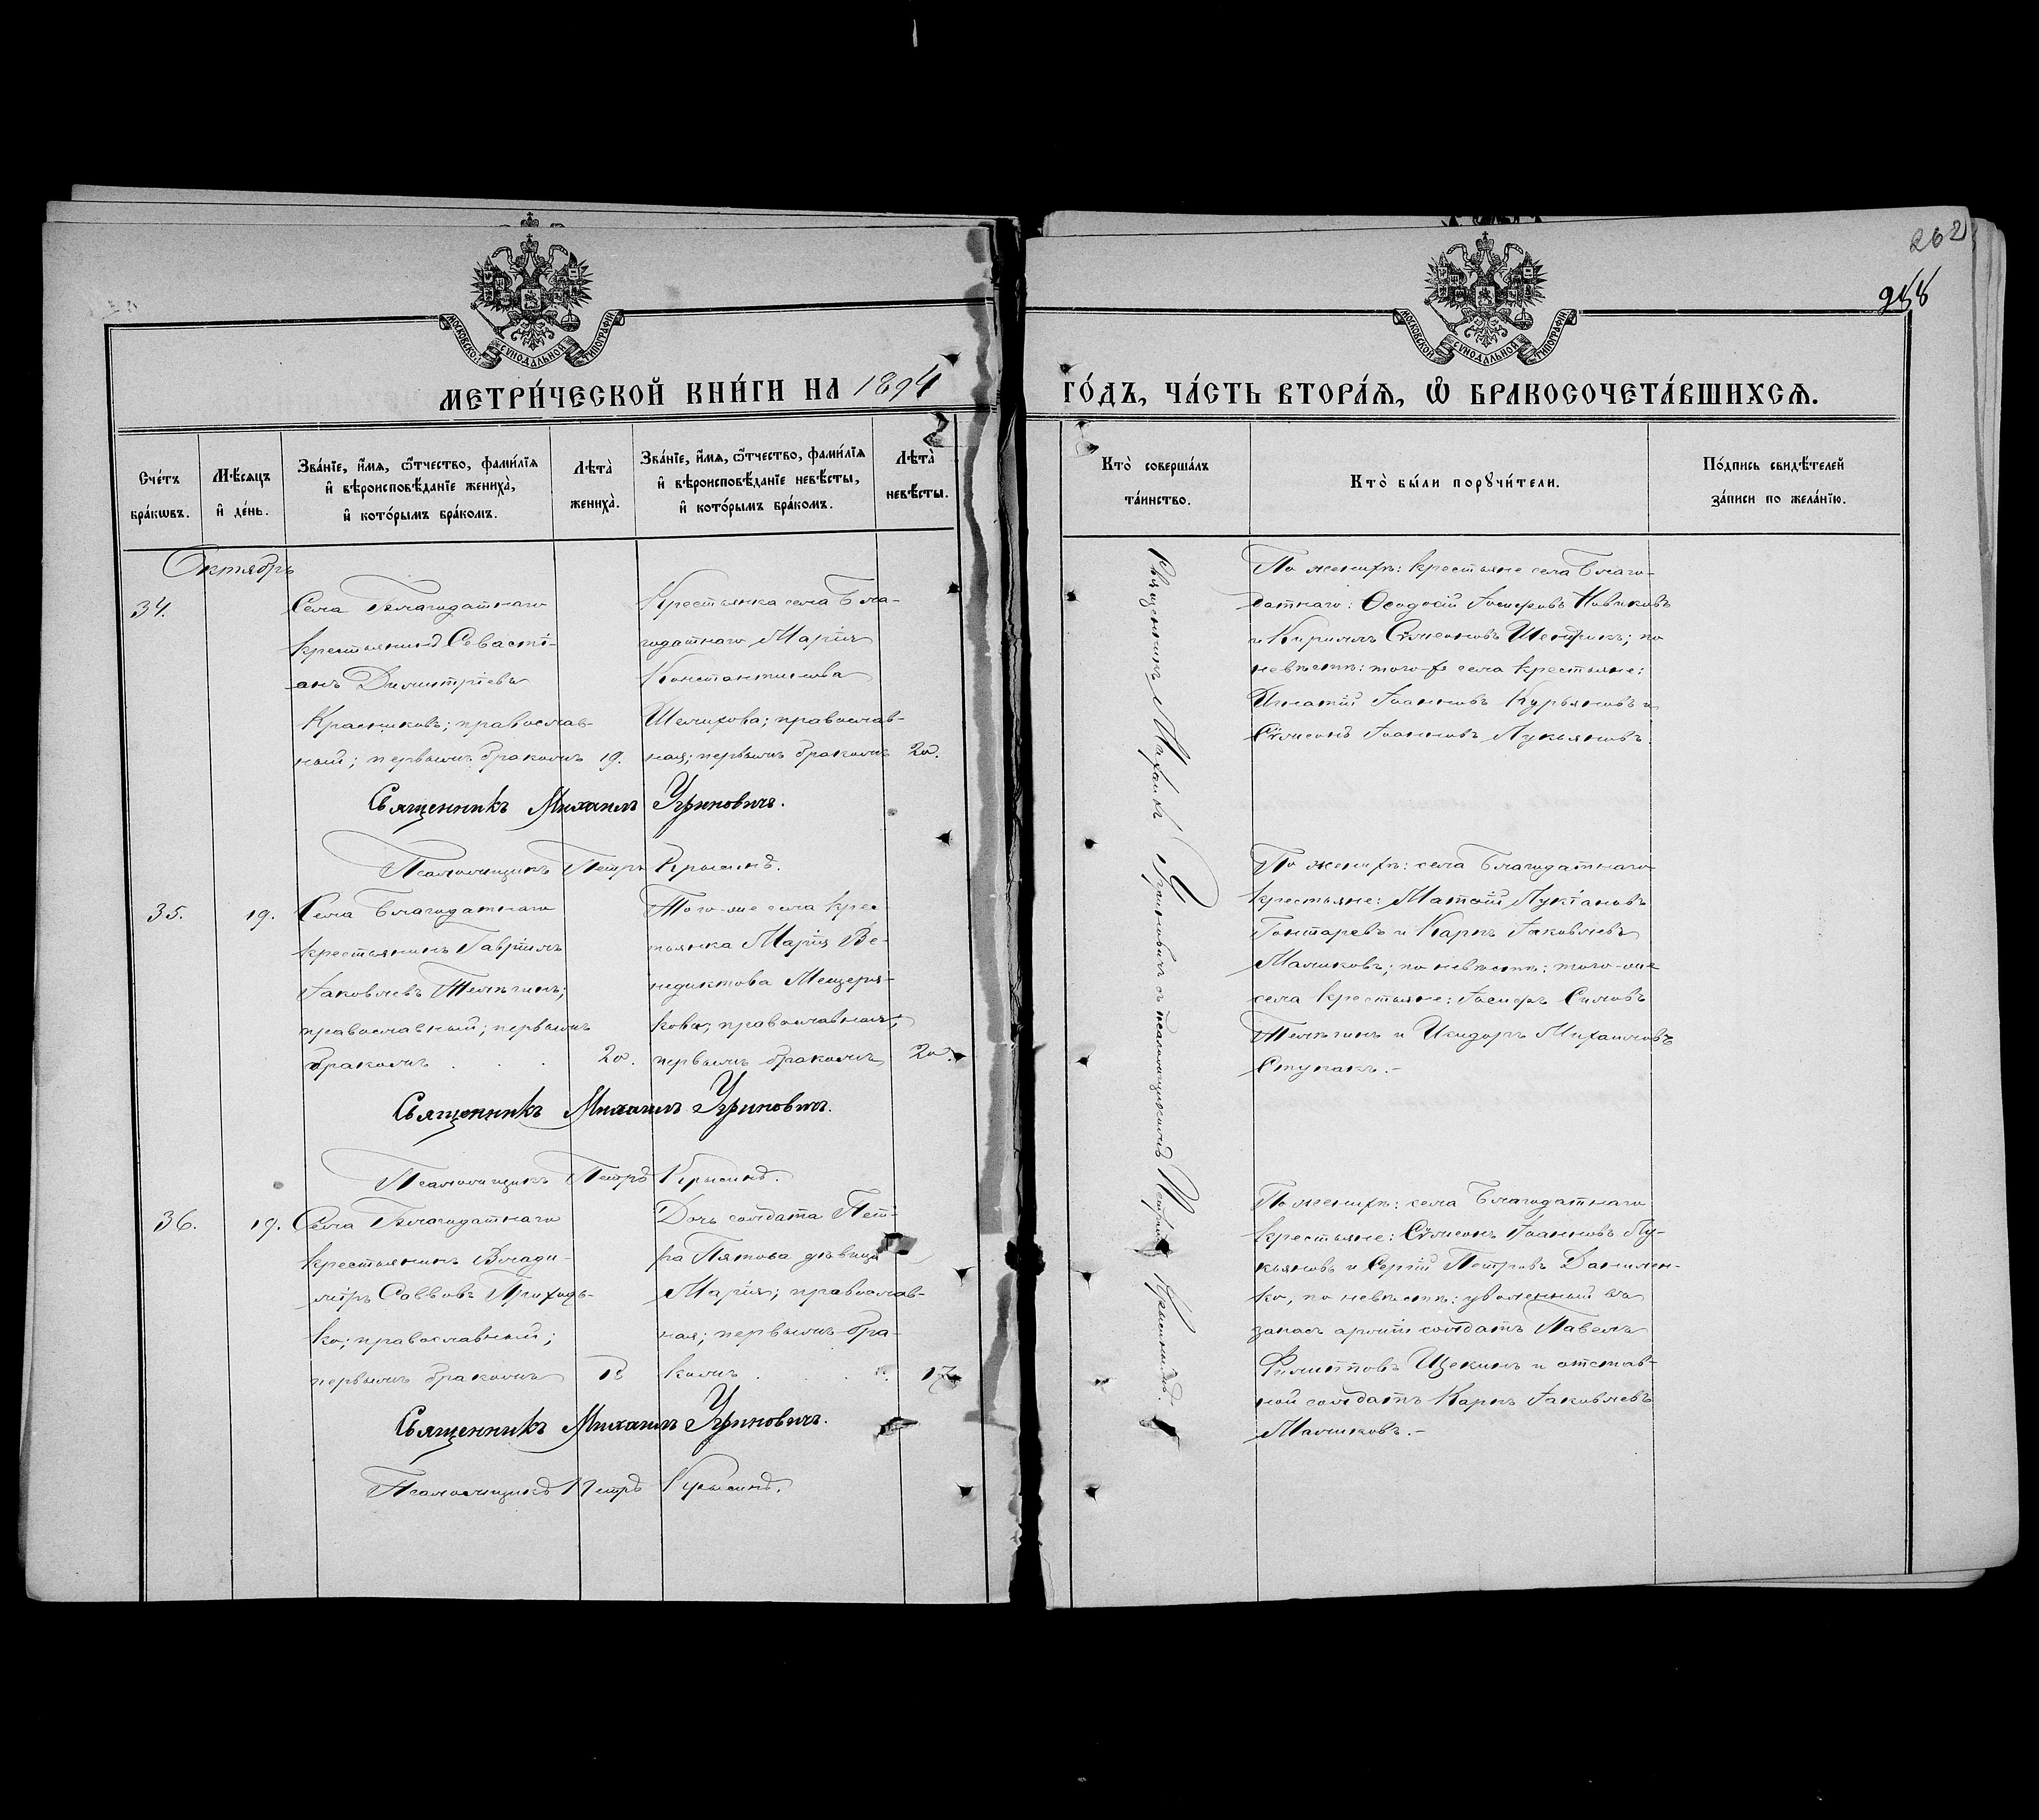 262
988
МОСКОВСКОЙ СѴНОДАЛЬНОЙ ТИПОГРАФІИ
МОСКОВСКОЙ СѴНОДАЛЬНОЙ ТИПОГРАФІИ
МЕТРИ́ЧЕСКОЙ КНИ́ГИ НА 1894 ГО́ДЪ, ЧА́СТЬ ВТОРА́Ѧ, Ѽ БРАКОСОЧЕТА́ВШИХСѦ.
Сче́тъ бра́кѡвъ.
Мѣ́сѧцъ и҆ де́нь.
Зва́нїе, и҆́мѧ, ѻ҆́тчество, фами́лїѧ
и҆ вѣроисповѣ́данїе жениха̀,
и҆ кото́рымъ бра́комъ.
Лѣта̀
жениха̀.
Зва́нїе, и҆́мѧ, ѻ҆́тчество, фами́лїѧ
и҆ вѣроисповѣ́данїе невѣ́сты,
и҆ кото́рымъ бра́комъ.
Лѣта̀
невѣ́сты.
Кто̀ соверша́лъ
та́инство.
Кто̀ бы́ли порꙋчи́тели.
По́дпись свидѣ́телей
за́писи по жела́нїю.
Октябрь
34.
Села Благодатнаго
крестьянинъ Севасті-
анъ Димитріевъ
Красниковъ; православ-
ный; первымъ бракомъ
19.
Крестьянка села Бла-
годатнаго Марія
Константинова
Шелихова; православ-
ная; первымъ бракомъ
20.
По женихѣ: крестьяне села Благо-
датнаго: Ѳеодосій Іосифовъ Новиковъ
и Кириллъ Сѵмеоновъ Шендрикъ; по
невѣстѣ: того-же села крестьяне:
Игнатій Іоанновъ Курьяновъ и
Сѵмеонъ Іоанновъ Лукьяновъ.
Священникъ Михаилъ Угриновичъ.
Псаломщикъ Петръ Крысинъ.
35.
19.
Села Благодатнаго
крестьянинъ Гавріилъ
Іаковлевъ Телѣгинъ;
православный; первымъ
бракомъ . . .
20.
Того-же села крес-
тьянка Марія Ве-
недиктова Мещеря-
кова; православная;
первымъ бракомъ
20.
По женихѣ: села Благодатнаго
крестьяне: Матѳій Лукіановъ
Гонтаревъ и Карпъ Іаковлевъ
Маликовъ; по невѣстѣ: того-же
села крестьяне: Іосифъ Силовъ
Телѣгинъ и Исидоръ Михаиловъ
Ступакъ.-
Священникъ Михаилъ Угриновичъ.
Псаломщикъ Петръ Крысинъ.
36.
19.
Села Благодатнаго
крестьянинъ Влади-
міръ Саввовъ Приходь-
ко; православный;
первымъ бракомъ
18
Дочь солдата Пет-
ра Пятова дѣвица
Марія; православ-
ная; первымъ бра-
комъ . . .
17.
По женихѣ: села Благодатнаго
крестьяне: Сѵмеонъ Іоанновъ Лу-
кьяновъ и Сергій Петровъ Данилен-
ко; по невѣстѣ: уволенный въ
запасъ арміи солдатъ Павелъ
Филипповъ Щекинъ и отстав-
ной солдатъ Карпъ Іаковлевъ
Маликовъ.-
Священникъ Михаилъ Угриновичъ.
Псаломщикъ Петръ Крысинъ.
Священникъ Михаилъ Угриновичъ съ псаломщикомъ Петромъ Крысинымъ.